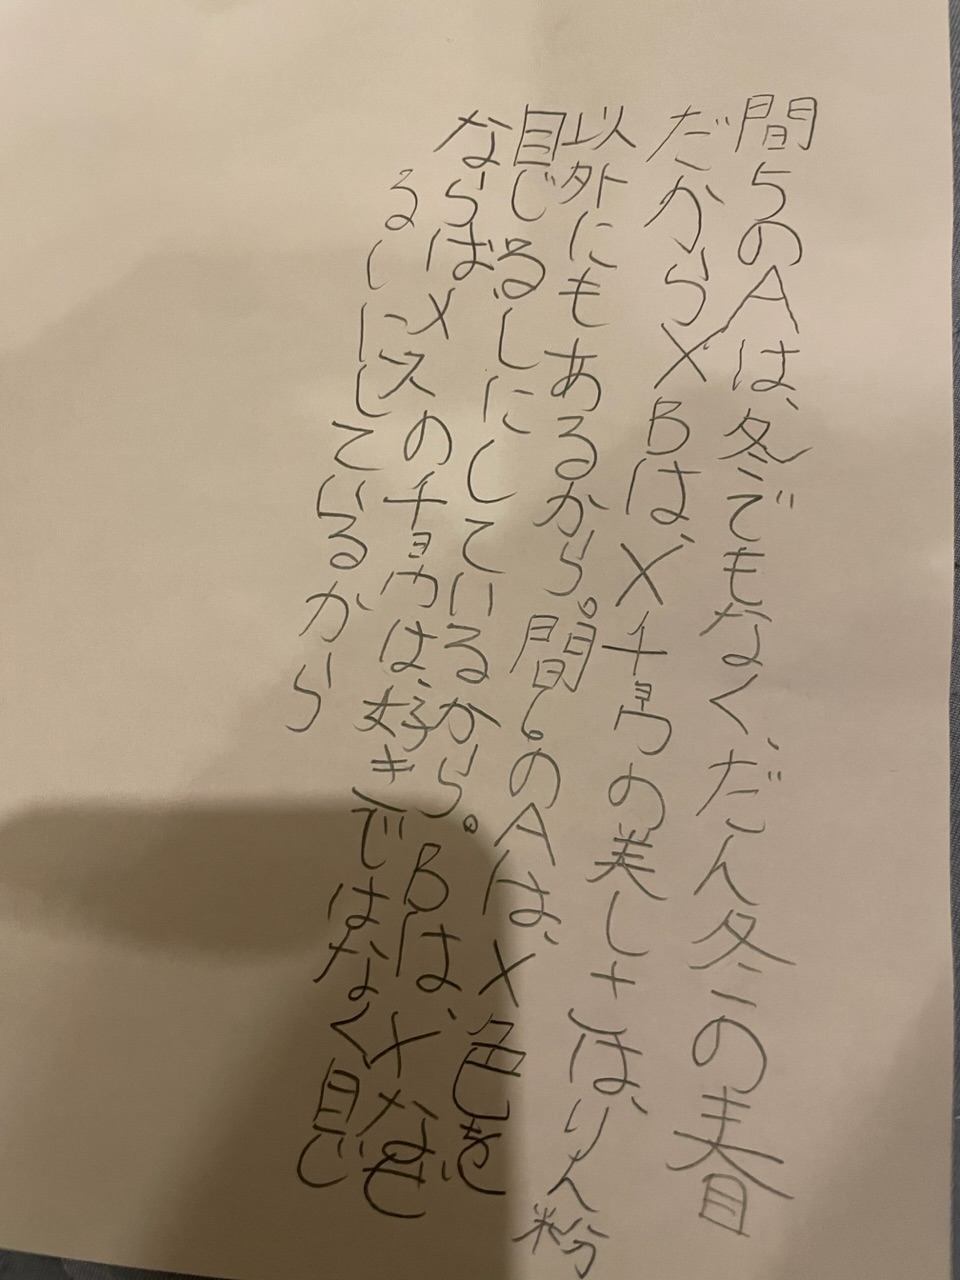 間5のAは、冬でもなく、だん冬の春
だからX Bは、Xチョウの美しさは、りん粉
以外にもあるから。間6のAは、X色を
目じるしにしているから。Bは、Xなぜ
ならばメスのチョウは、好きではなく目じ
るしにしているから